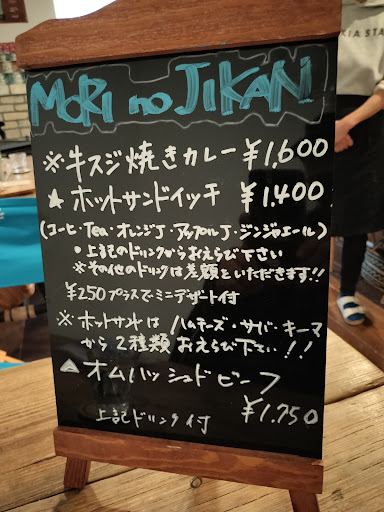 MORI no JIKAN
※牛スジ焼きカレー ¥1,600
★ホットサンドイッチ ¥1,400
(コーヒ・Tea・オレンジJ・アップルJ・ジンジャエール)
・上記のドリンクからおえらび下さい
※その他のドリンクは差額をいただきます!!
¥250プラスでミニデザート付
※ホットサンドは ハムチーズ・サバ・キーマ
から2種類おえらび下さい!!
▲オムハッシュドビーフ
¥1,750
上記ドリンク付